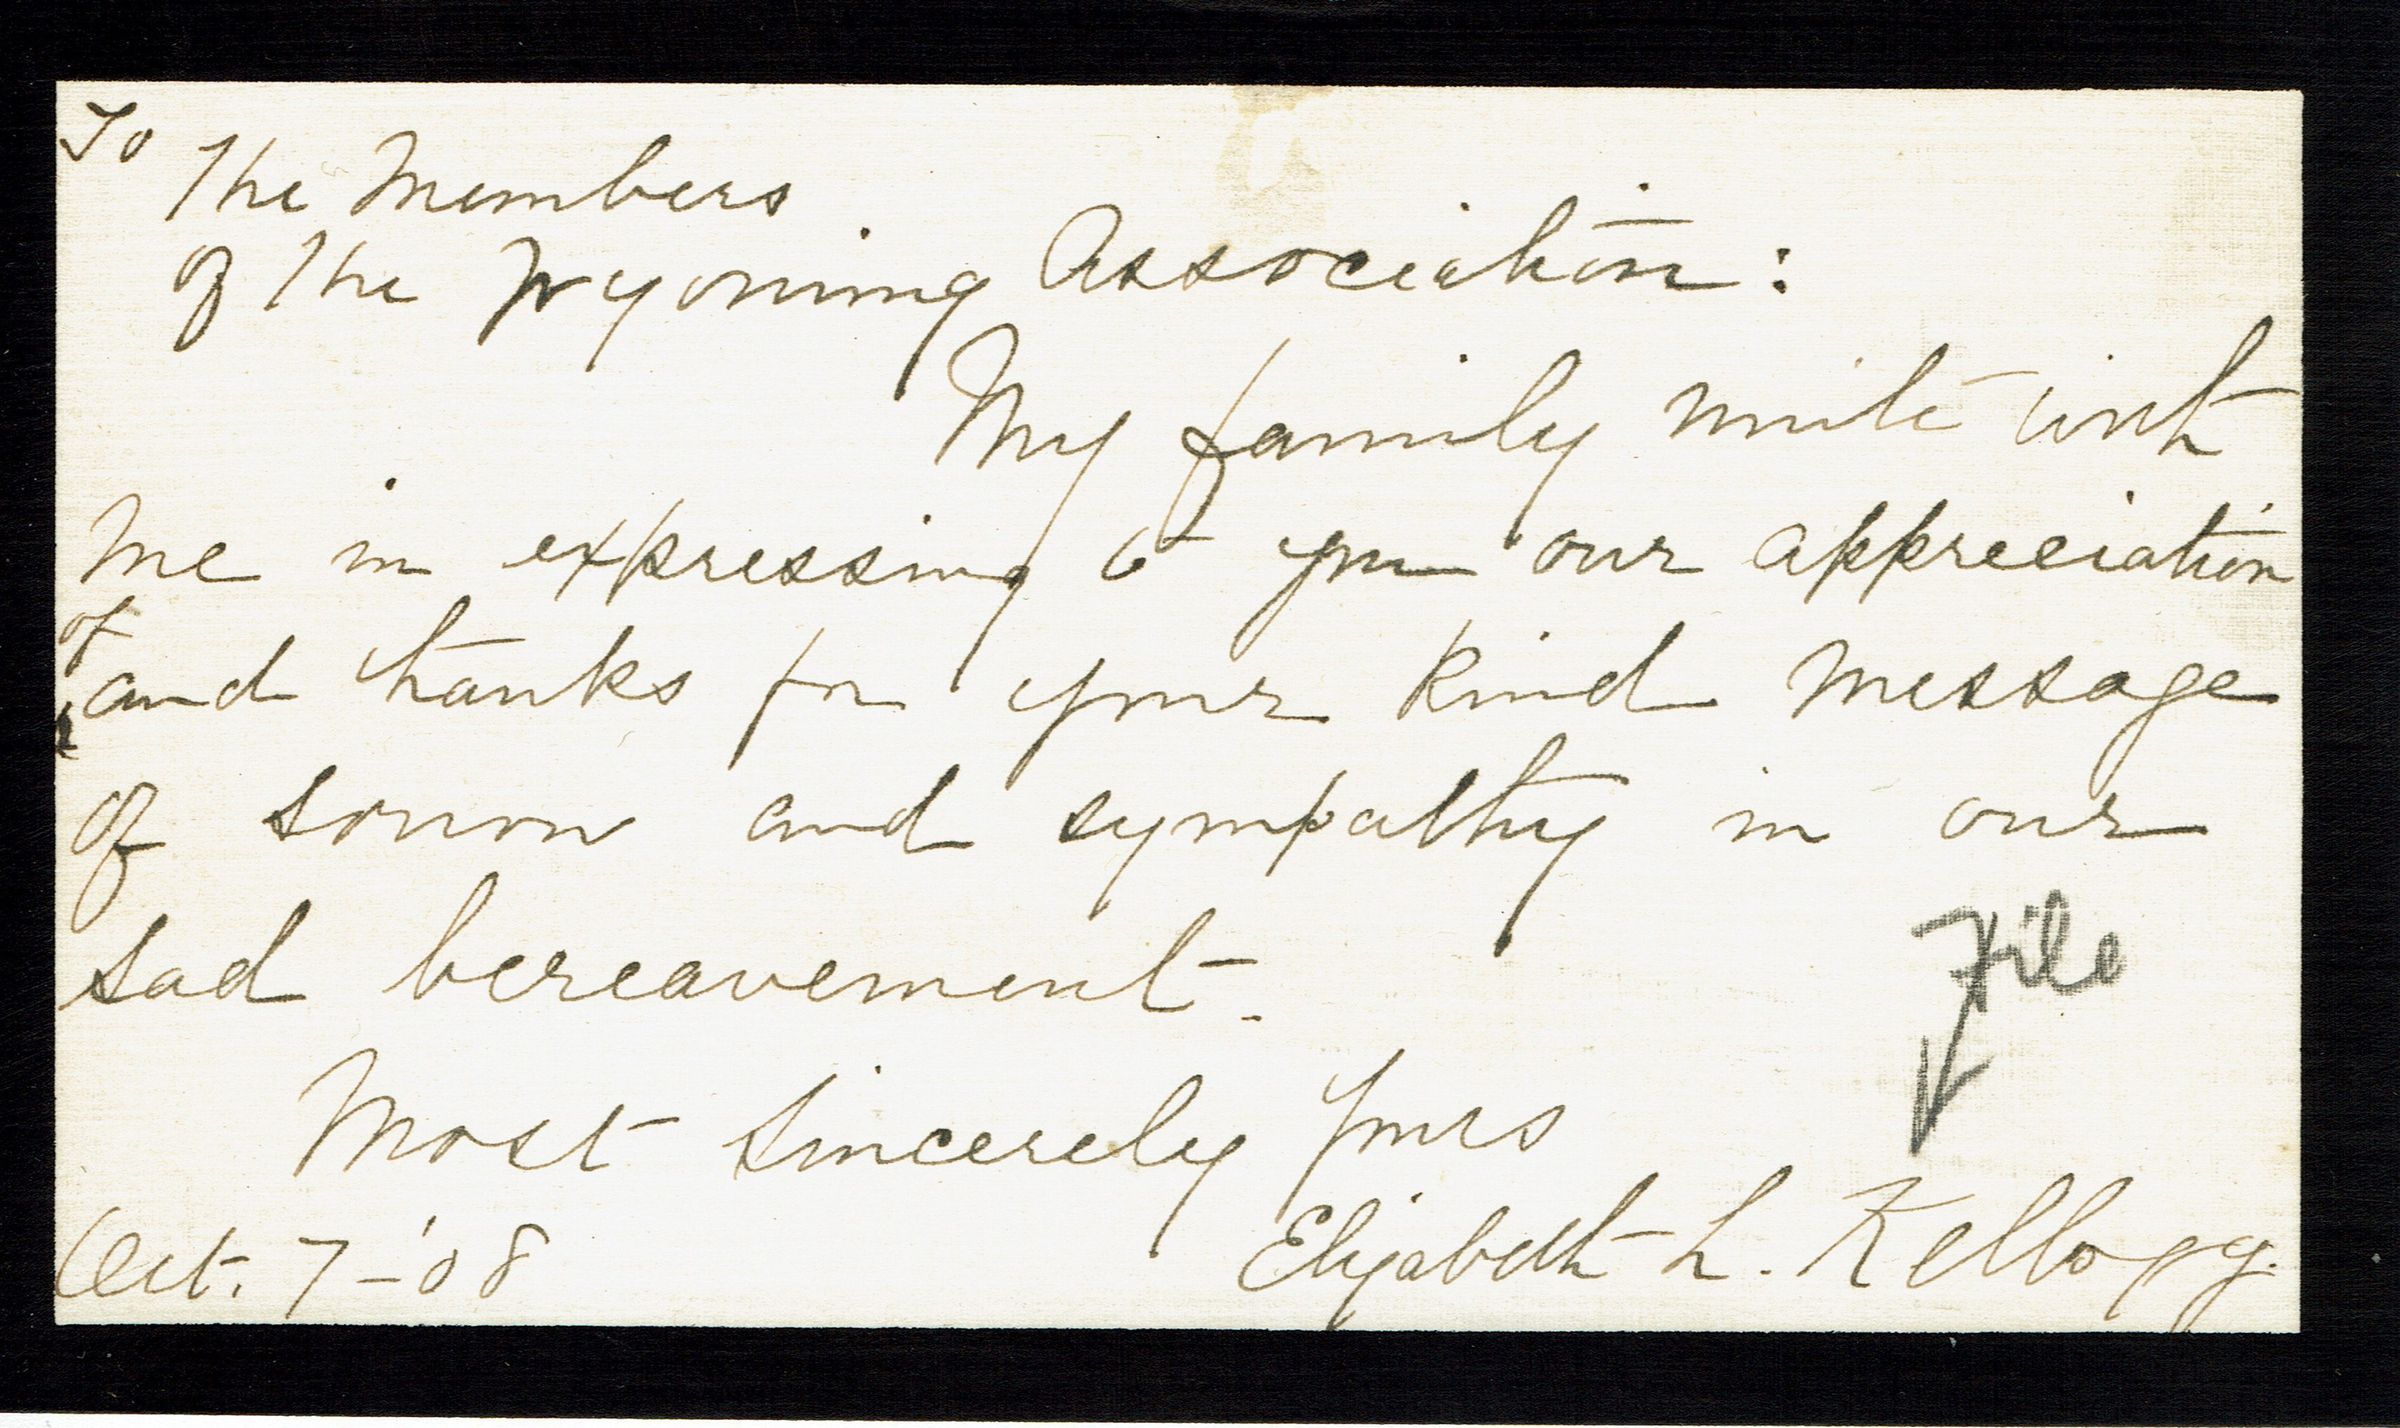 To
The Members
of the Wyoming Association:
My family unite with
me in expressing to you our appreciation
of
and thanks for your kind message
of sorrow and sympathy in our
sad bereavement.
File
Most sincerely yours
Elizabeth L. Kellogg.
Oct. 7-'08